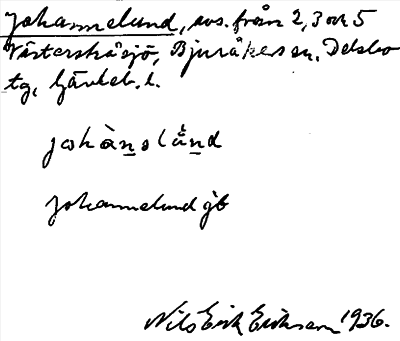 Johannelund, avs. från 2, 3 och 5
Västerstråsjö, Bjuråkers sn, Delsbo
tg, Gävleb. l.
johànslǻnd
Johannelund jb
Nils Erik Eriksson 1936.